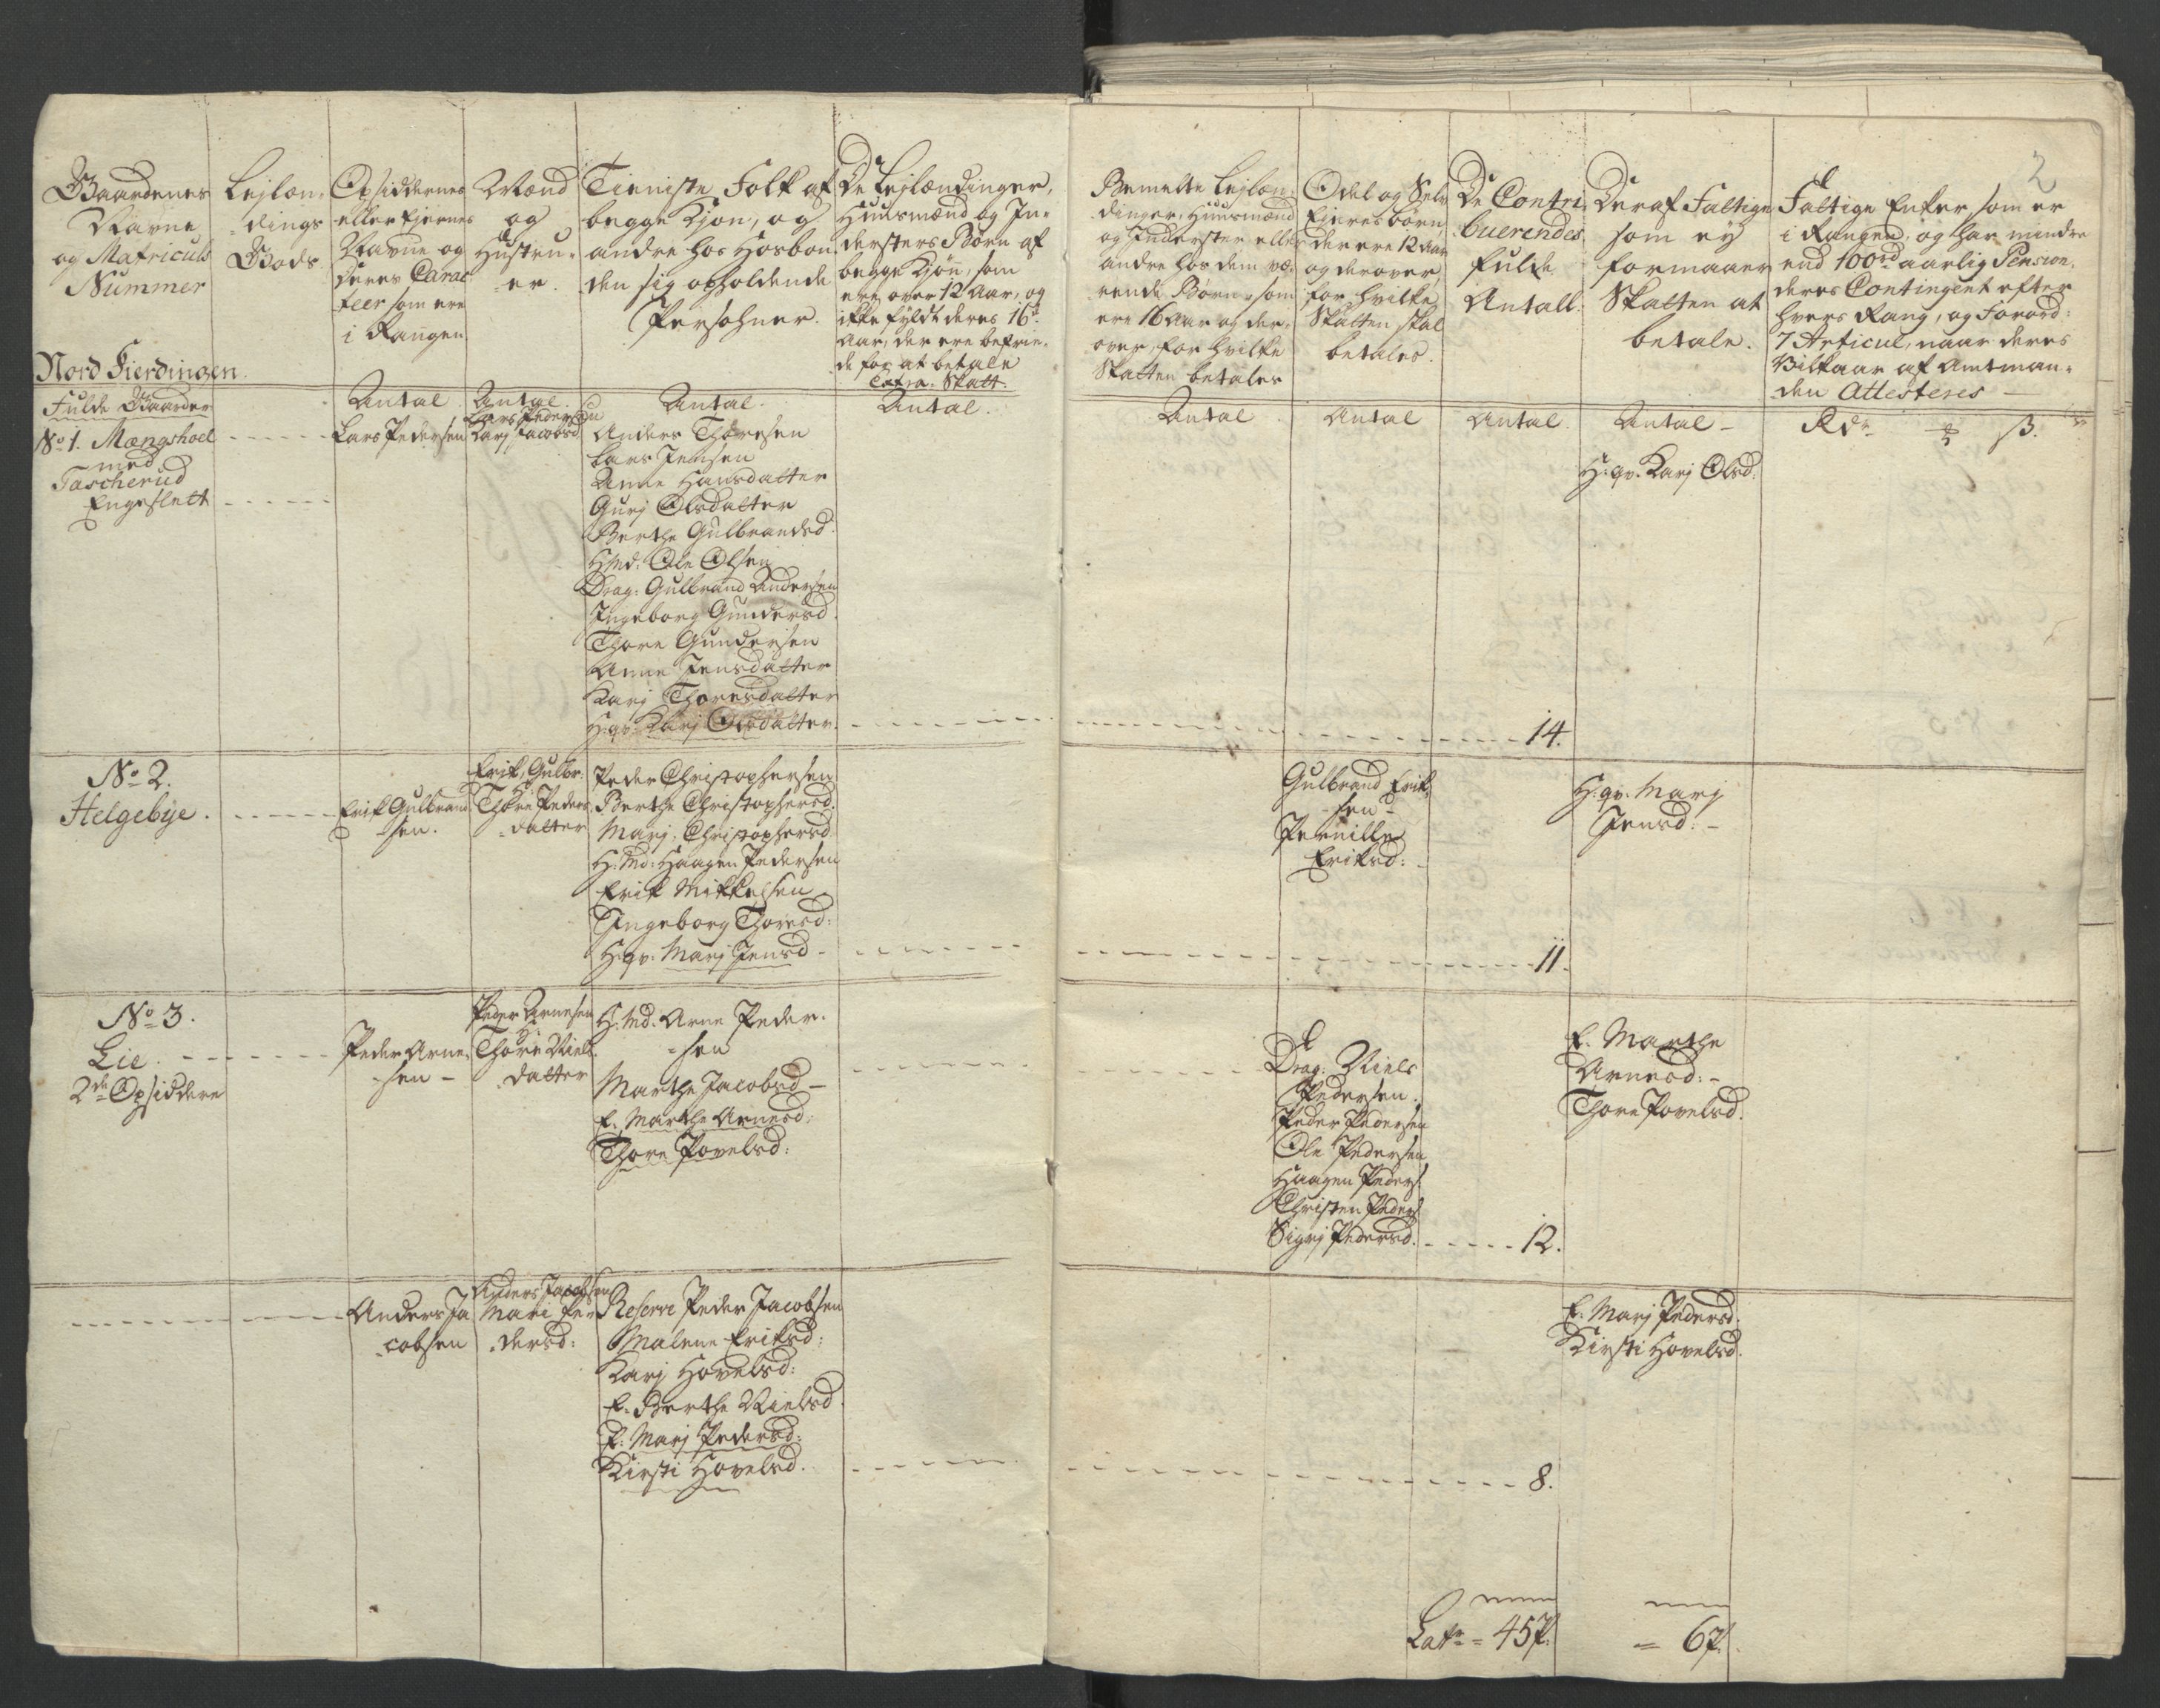 Gaardenes
Navne
og Matriculs
Nummer
Nord Fierdingen.
Lejlæn-
dings
Gods
Opsiddernes
eller Ejernes
Navne og
deres Carac
teer som ere
i Rangen
Mænd
og
Hustru-
er.
Tieniste Folk af
begge Kjøn, og
andre hos Hosbon
den sig opholdende
Persohner.
De Lejlændinger,
Huusmænd og In-
dersters Børn af
begge Kjøn, som
ere over 12 Aar, og
ikke fyldt deres 16de
Aar, der ere befrie-
de for at betale
Extra-Skatt.
Bemelte Lejlæn-
dinger, Huusmænd
og Inderster eller
andre hos dem væ-
rende Børn som
ere 16 Aar og der-
over, for hvilke
Skatten betales
Odel og Selv
Eieres børn
der ere 12 Aar
og derover,
for hvilke
Skatten skal
betales.
De Contri-
buerendes
fulde
Antall.
Deraf Fattige
som ey
formaaer
Skatten at
betale.
2
Fattige Enker, som er
i Rangen, og har mindre
end 100rd aarlig Pension,
deres Contingent efter
hvers Rang, og Forord:
7 Articul, naar deres
Vilkaar af Amtman-
den Attesteres —
Fulde Gaarder
Antal. Antal. Antal. Antal.
Antal Antal Antal Antal — Rdr ß.
No 1. Mængshoel
med
Tascherud
Engeslett
Lars Pedersen
Lars Pedersen
Karj Jacobsd
Anders Thoresen
Lars Jensen
Anne Hansdatter
Gurj Olsdatter
Berthe Gulbrandsd.
HMd: Ole Olsen
Drag: Gulbrand Andersen
Ingeborg Gundersd.
Thore Gundersen
Anne Jensdatter
Karj Thoresdatter
H:qv: Karj Olsdatter.
14.
H:qv. Karj Olsd:
No 2.
Helgebye.
Erik Gulbrand-
sen.
Erik Gulbr:
Thore Peders
datter
Peder Christophersen
Berthe Christophersd.
Marj. Christophersd
H:Md: Haagen Pedersen
Erik Mikkelsen
Ingeborg Thoresd:
H:qv: Marj Jensd -
Gulbrand Erik-
sen -
Pernille
Eriksd:
11.
H:qv. Marj
Jensd: -
No 3.
Lie.
2de Opsiddere
Peder Arne-
sen -
Peder Arnesen
Thore Niels
datter
H:Md. Arne Peder-
sen
Marthe Jacobsd —
E. Marthe Arnesd:
Thore Povelsd:
Drag: Niels
Pedersen.
Peder Pedersen
Ole Pedersen
Haagen Peders.
Christen Peders
Sigrj Pedersd.
12.
E. Marthe
Arnesd: -
Thore Povelsd.
Anders Ja
cobsen
Anders Jacobsen
Mari Pe
dersd:
Reserve Peder Jacobsen
Malene Eriksd:
Karj Hovelsd:
E. Berthe Nielsd
E: Marj Pedersd:
Kirsti Hovelsd.
8.
E. Marj Pedersd.
Kirsti Hovelsd.
Latr = 45 P.
= 6 P.